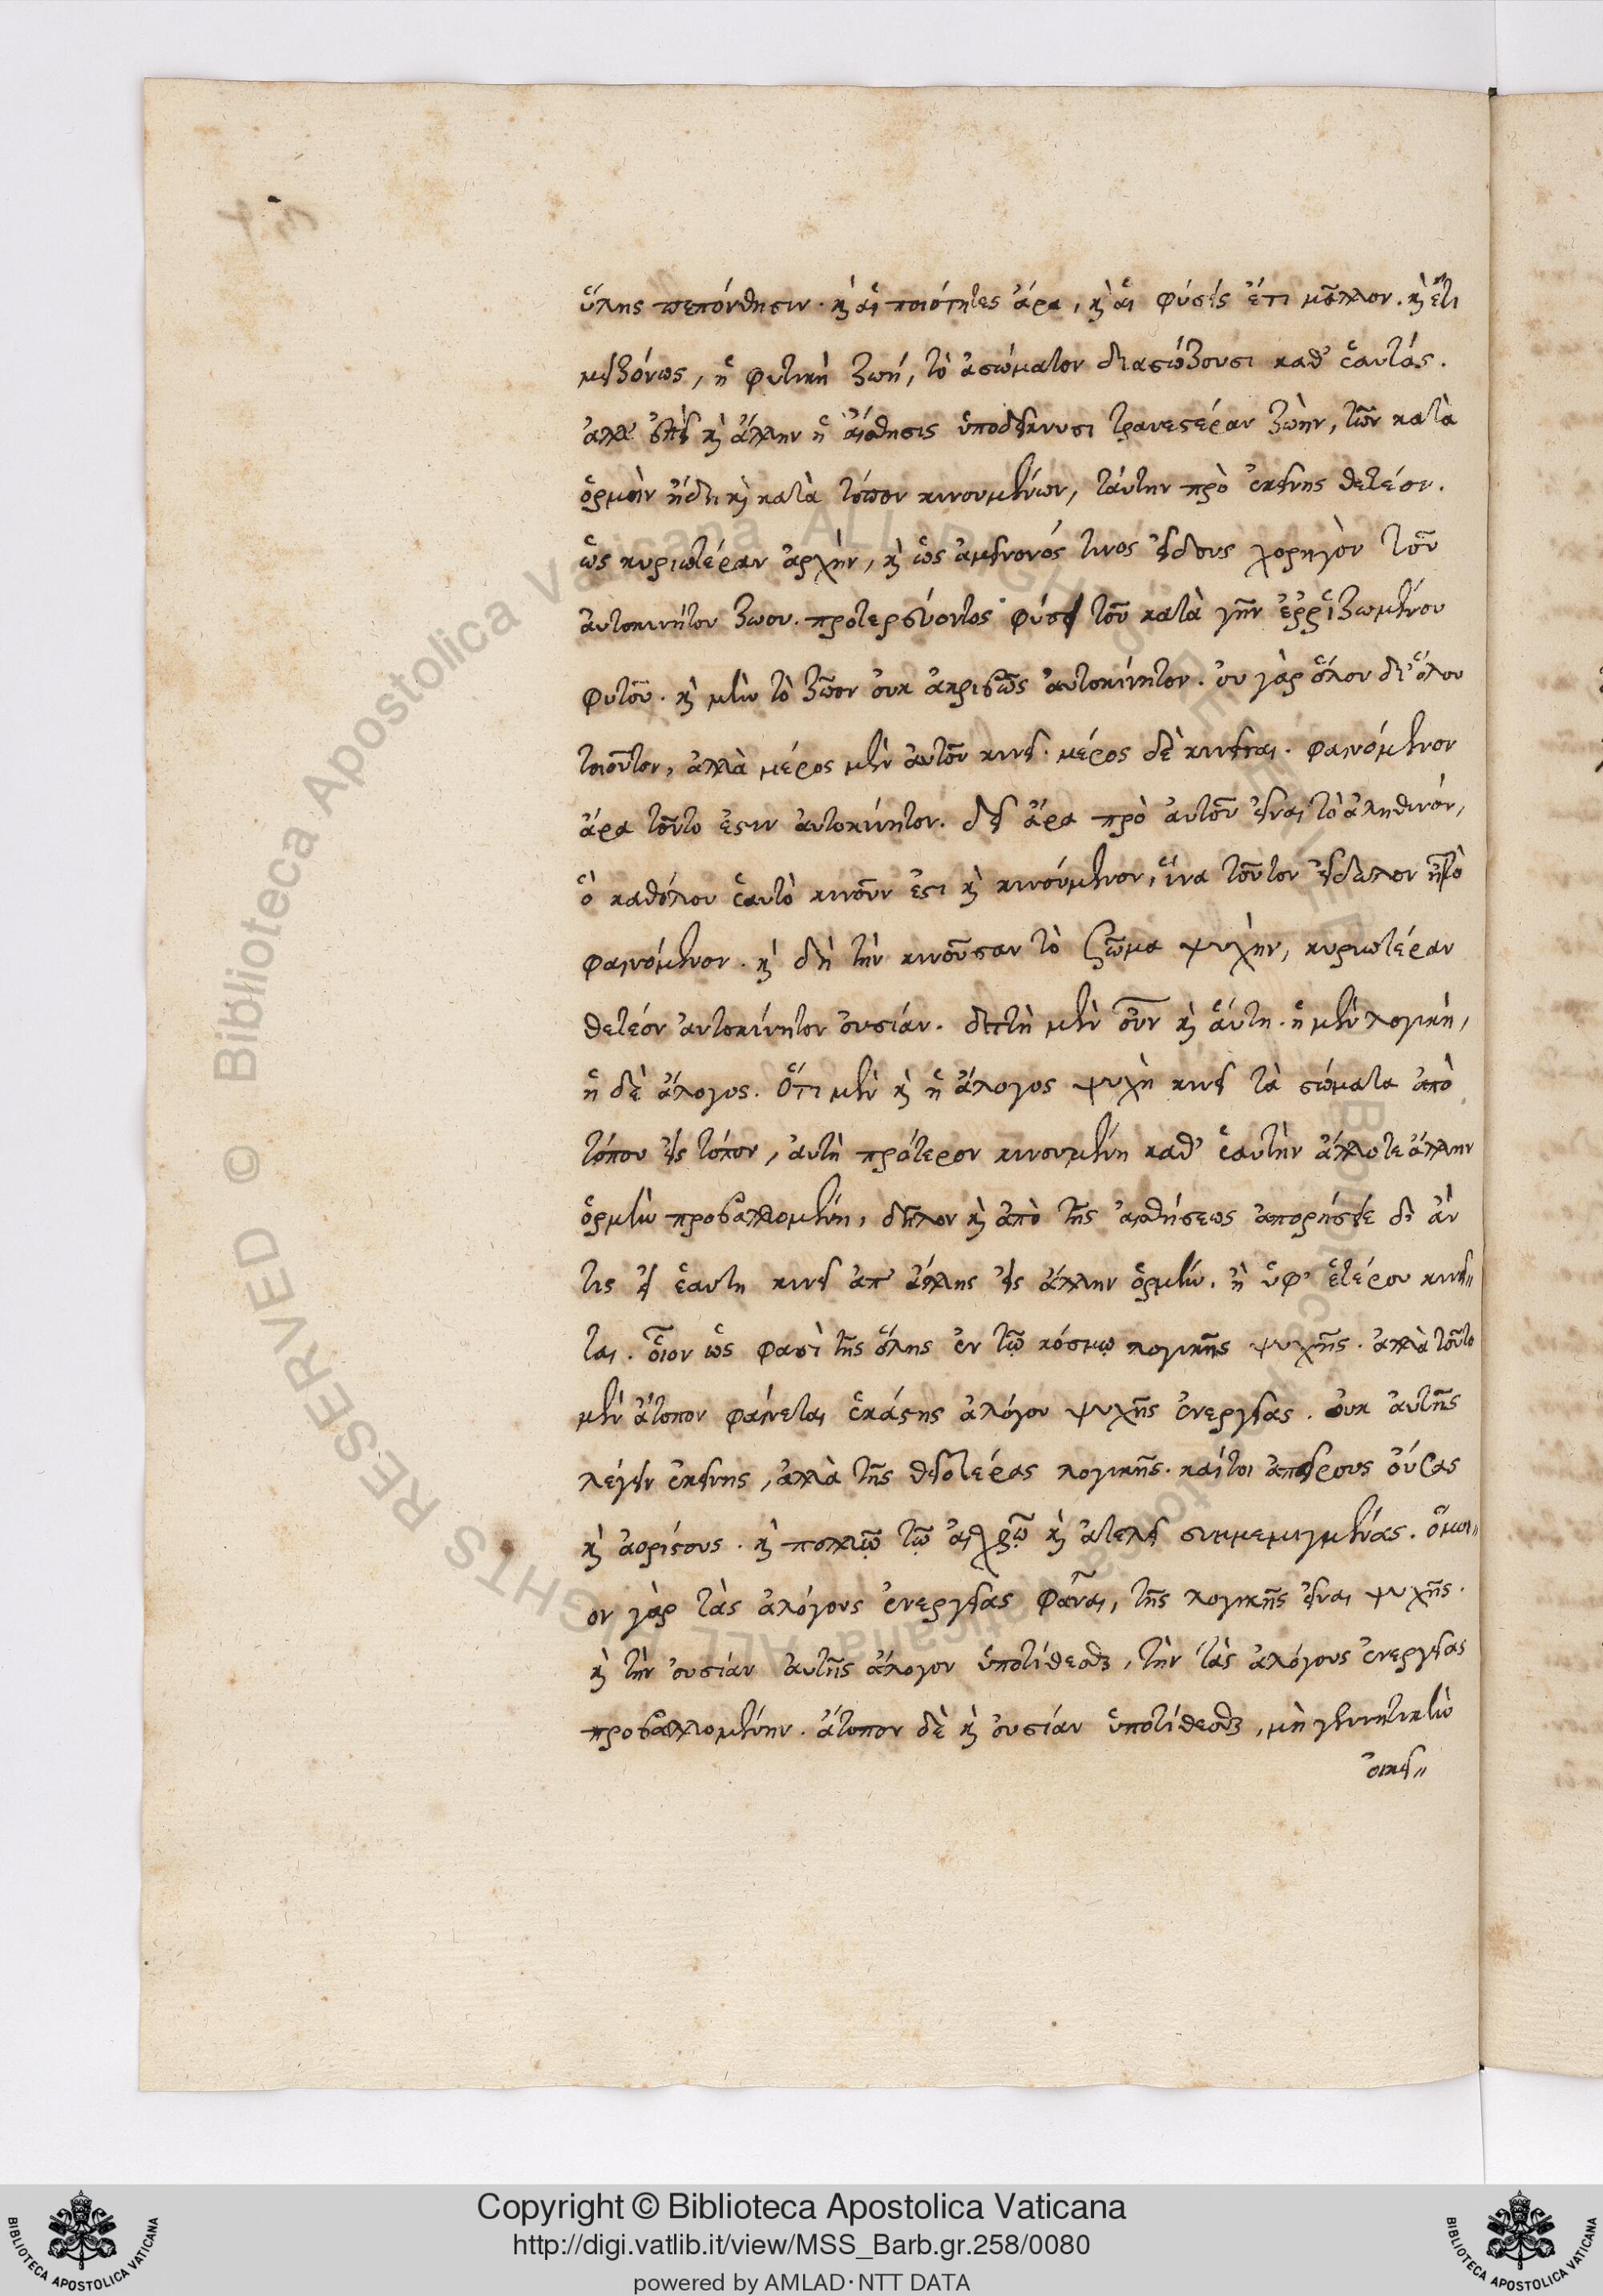 ὕλης πεπόνθησιν. καὶ αἱ ποιότητες ἄρα, καὶ αἱ φύσεις ἔτι μᾶλλον. καὶ ἔτι
μειζόνως, ἡ φυτικὴ ζωή, τὸ ἀσώματον διασώζουσι καθ' ἑαυτάς.
ἀλλ' ἐπεὶ καὶ ἄλλην ἡ αἴσθησις ὑποδείκνυσι τρανεστέραν ζωὴν, τῶν κατὰ
ὁρμὴν ἤδη καὶ κατὰ τόπον κινουμένων, ταύτην πρὸ ἐκείνης θετέον.
ὡς κυριωτέραν ἀρχὴν, καὶ ὡς ἀμείνονός τινος εἴδους χορηγὸν τοῦ
αὐτοκινήτου ζωου. προτερεύοντος φύσει τοῦ κατὰ γῆν ἐῤῥιζωμένου
φυτοῦ. καὶ μὴν τὸ ζῶον οὐκ ἀκριβῶς αὐτοκίνητον. οὐ γὰρ ὅλον δι' ὅλου
τοιοῦτον, ἀλλὰ μέρος μὲν αὐτοῦ κινεῖ. μέρος δὲ κινεῖται. φαινόμενον
ἄρα τοῦτο ἐστιν αὐτοκίνητον. δεῖ ἄρα πρὸ αὐτοῦ εἶναι τὸ ἀληθινόν,
ὃ καθόλου ἑαυτὸ κινοῦν ἐστι καὶ κινούμενον, ἵνα τοῦτον εἴδωλον ᾖ τὸ
φαινόμενον. καὶ δὴ τὴν κινοῦσαν τὸ σῶμα ψυχὴν, κυριωτέραν
θετέον αὐτοκίνητον οὐσίαν. διττὴ μὲν οὖν καὶ αὕτη. ἡ μὲν λογική,
ἡ δὲ ἄλογος. ὅτι μὲν καὶ ἡ ἄλογος ψυχὴ κινεῖ τὰ σώματα ἀπὸ
τόπου εἰς τόπον, αὐτὴ πρότερον κινουμένη καθ' ἑαυτὴν ἄλλοτε ἄλλην
ὁρμὴν προβαλλομένη, δῆλον καὶ ἀπὸ τῆς αἰσθήσεως ἀπορήσειε δ' ἄν
τις εἰ ἑαυτη κινεῖ ἀπ' ἄλλης εἰς ἄλλην ὁρμὴν. ἢ ὑφ' ἑτέρου κινεῖ"
ται. οἷον ὡς φασὶ τῆς ὅλης ἐν τῷ κόσμῳ λογικῆς ψυχῆς. ἀλλὰ τοῦτο
μὲν ἄτοπον φαίνεται ἑκάστης ἀλόγου ψυχῆς ἐνεργείας. οὐκ αὐτῆς
λέγειν ἐκείνης, ἀλλὰ τῆς θειοτέρας λογικῆς. καίτοι ἀπείρους οὔσας
καὶ ἀορίστους. καὶ πολλῷ τῷ αἰσχρῷ καὶ ἀτελεῖ συμμεμιγμένας. ὅμοι"
ον γὰρ τὰς ἀλόγους ἐνεργείας φάναι, τῆς λογικῆς εἶναι ψυχῆς.
καὶ τὴν οὐσίαν αὐτῆς ἄλογον ὑποτίθεσθαι, τὴν τὰς ἀλόγους ἐνεργείας
προβαλλομένην. ἄτοπον δὲ καὶ οὐσίαν ὑποτίθεσθαι, μὴ γεννητικὴν
οἰκεί"
Copyright © Biblioteca Apostolica Vaticana
http://digi.vatlib.it/view/MSS_Barb.gr.258/0080
powered by AMLAD·NTT DATA